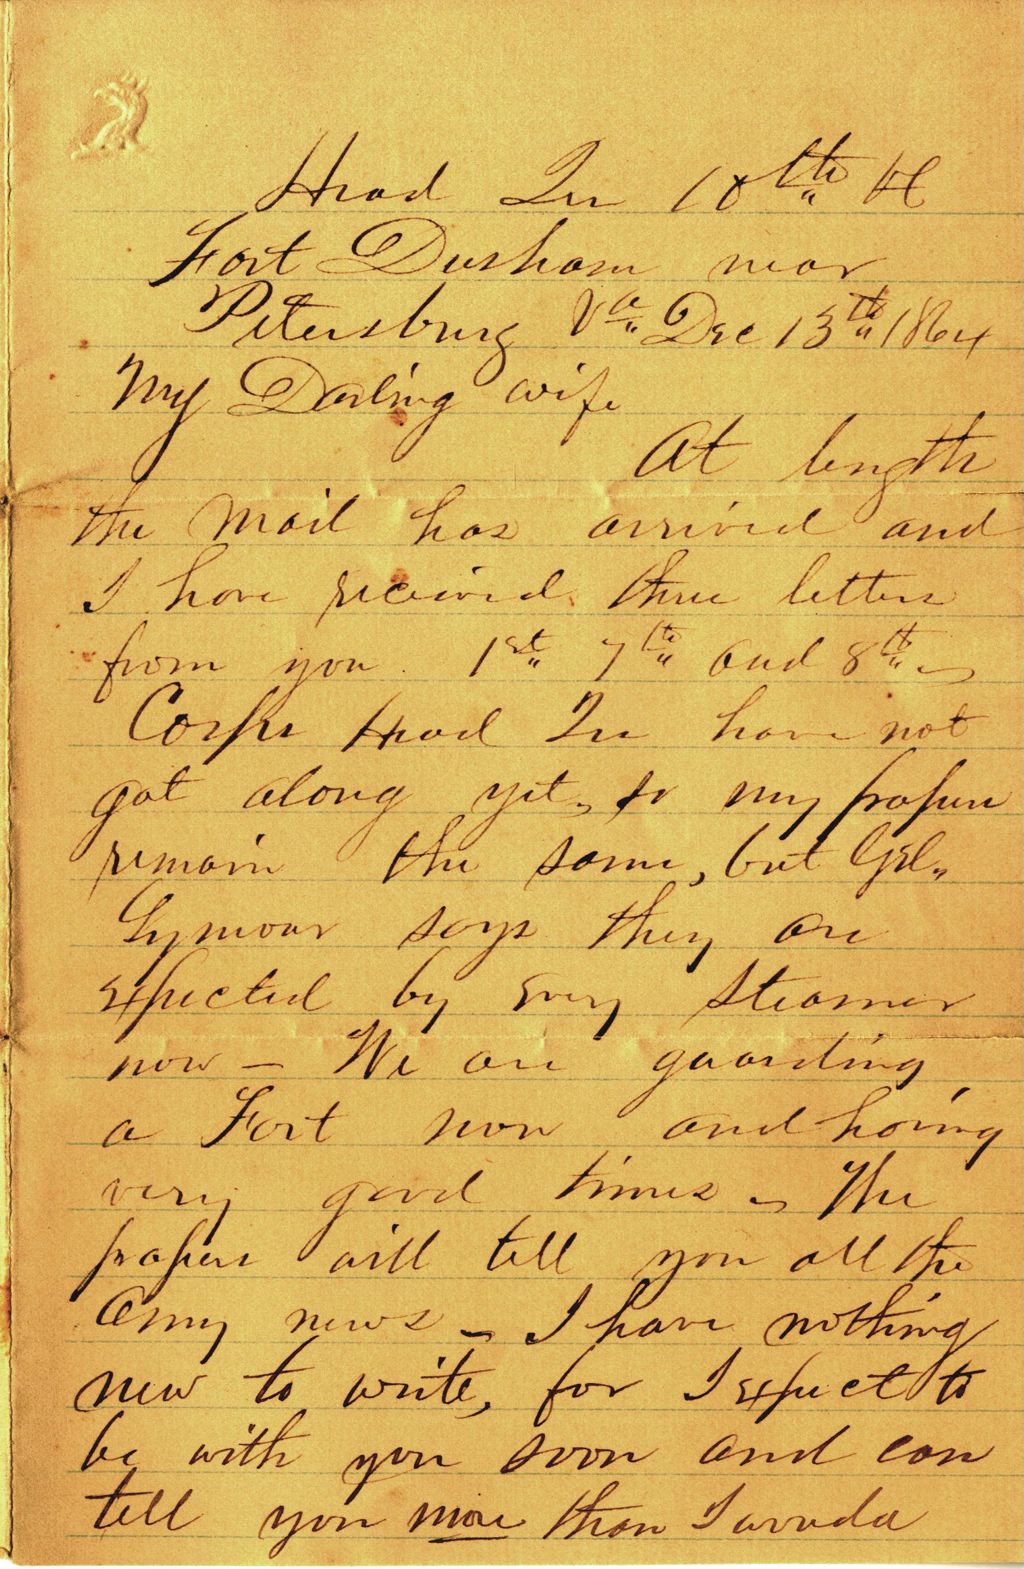 Head Qu 10th H
Fort Dusham near
Petersburg Va Dec 13th 1864
My Darling wife
At length
the Mail has arrived and
I have received three letters
from you 1st 7th and 8th -
Corps Head Qu have not
got along yet, so my papers
remain the same, but Gel.
Lymour says they are
expected by every steamer
now - We are guarding
a Fort now and having
very good times - The
papers will tell you all the
Army news - I have nothing
new to write, for I expect to
be with you soon and can
tell you more than I